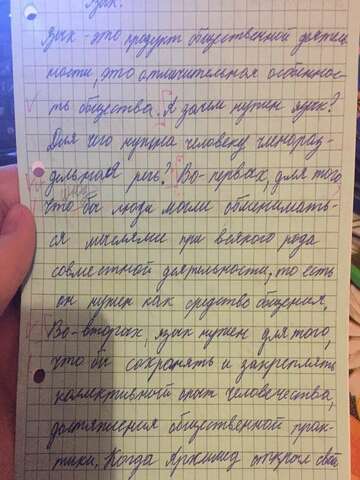 Язык.
Язык - это продукт общественной деятель
ности, это отличительная особеннос-
ть общества. А зачем нужен язык?
Для чего нужна человеку членораз-
дельная речь? Во-первых, для того,
что бы люди могли обмениматъ-
ся мыслями при всякого рода
совместной деятельности, то есть
он нужен как средство общения.
Во-вторых, язык нужен для того,
что бы сохранять и закреплять
коллективный опыт человечества,
достижения общественной прак-
тики. Когда Архимед открыл свой